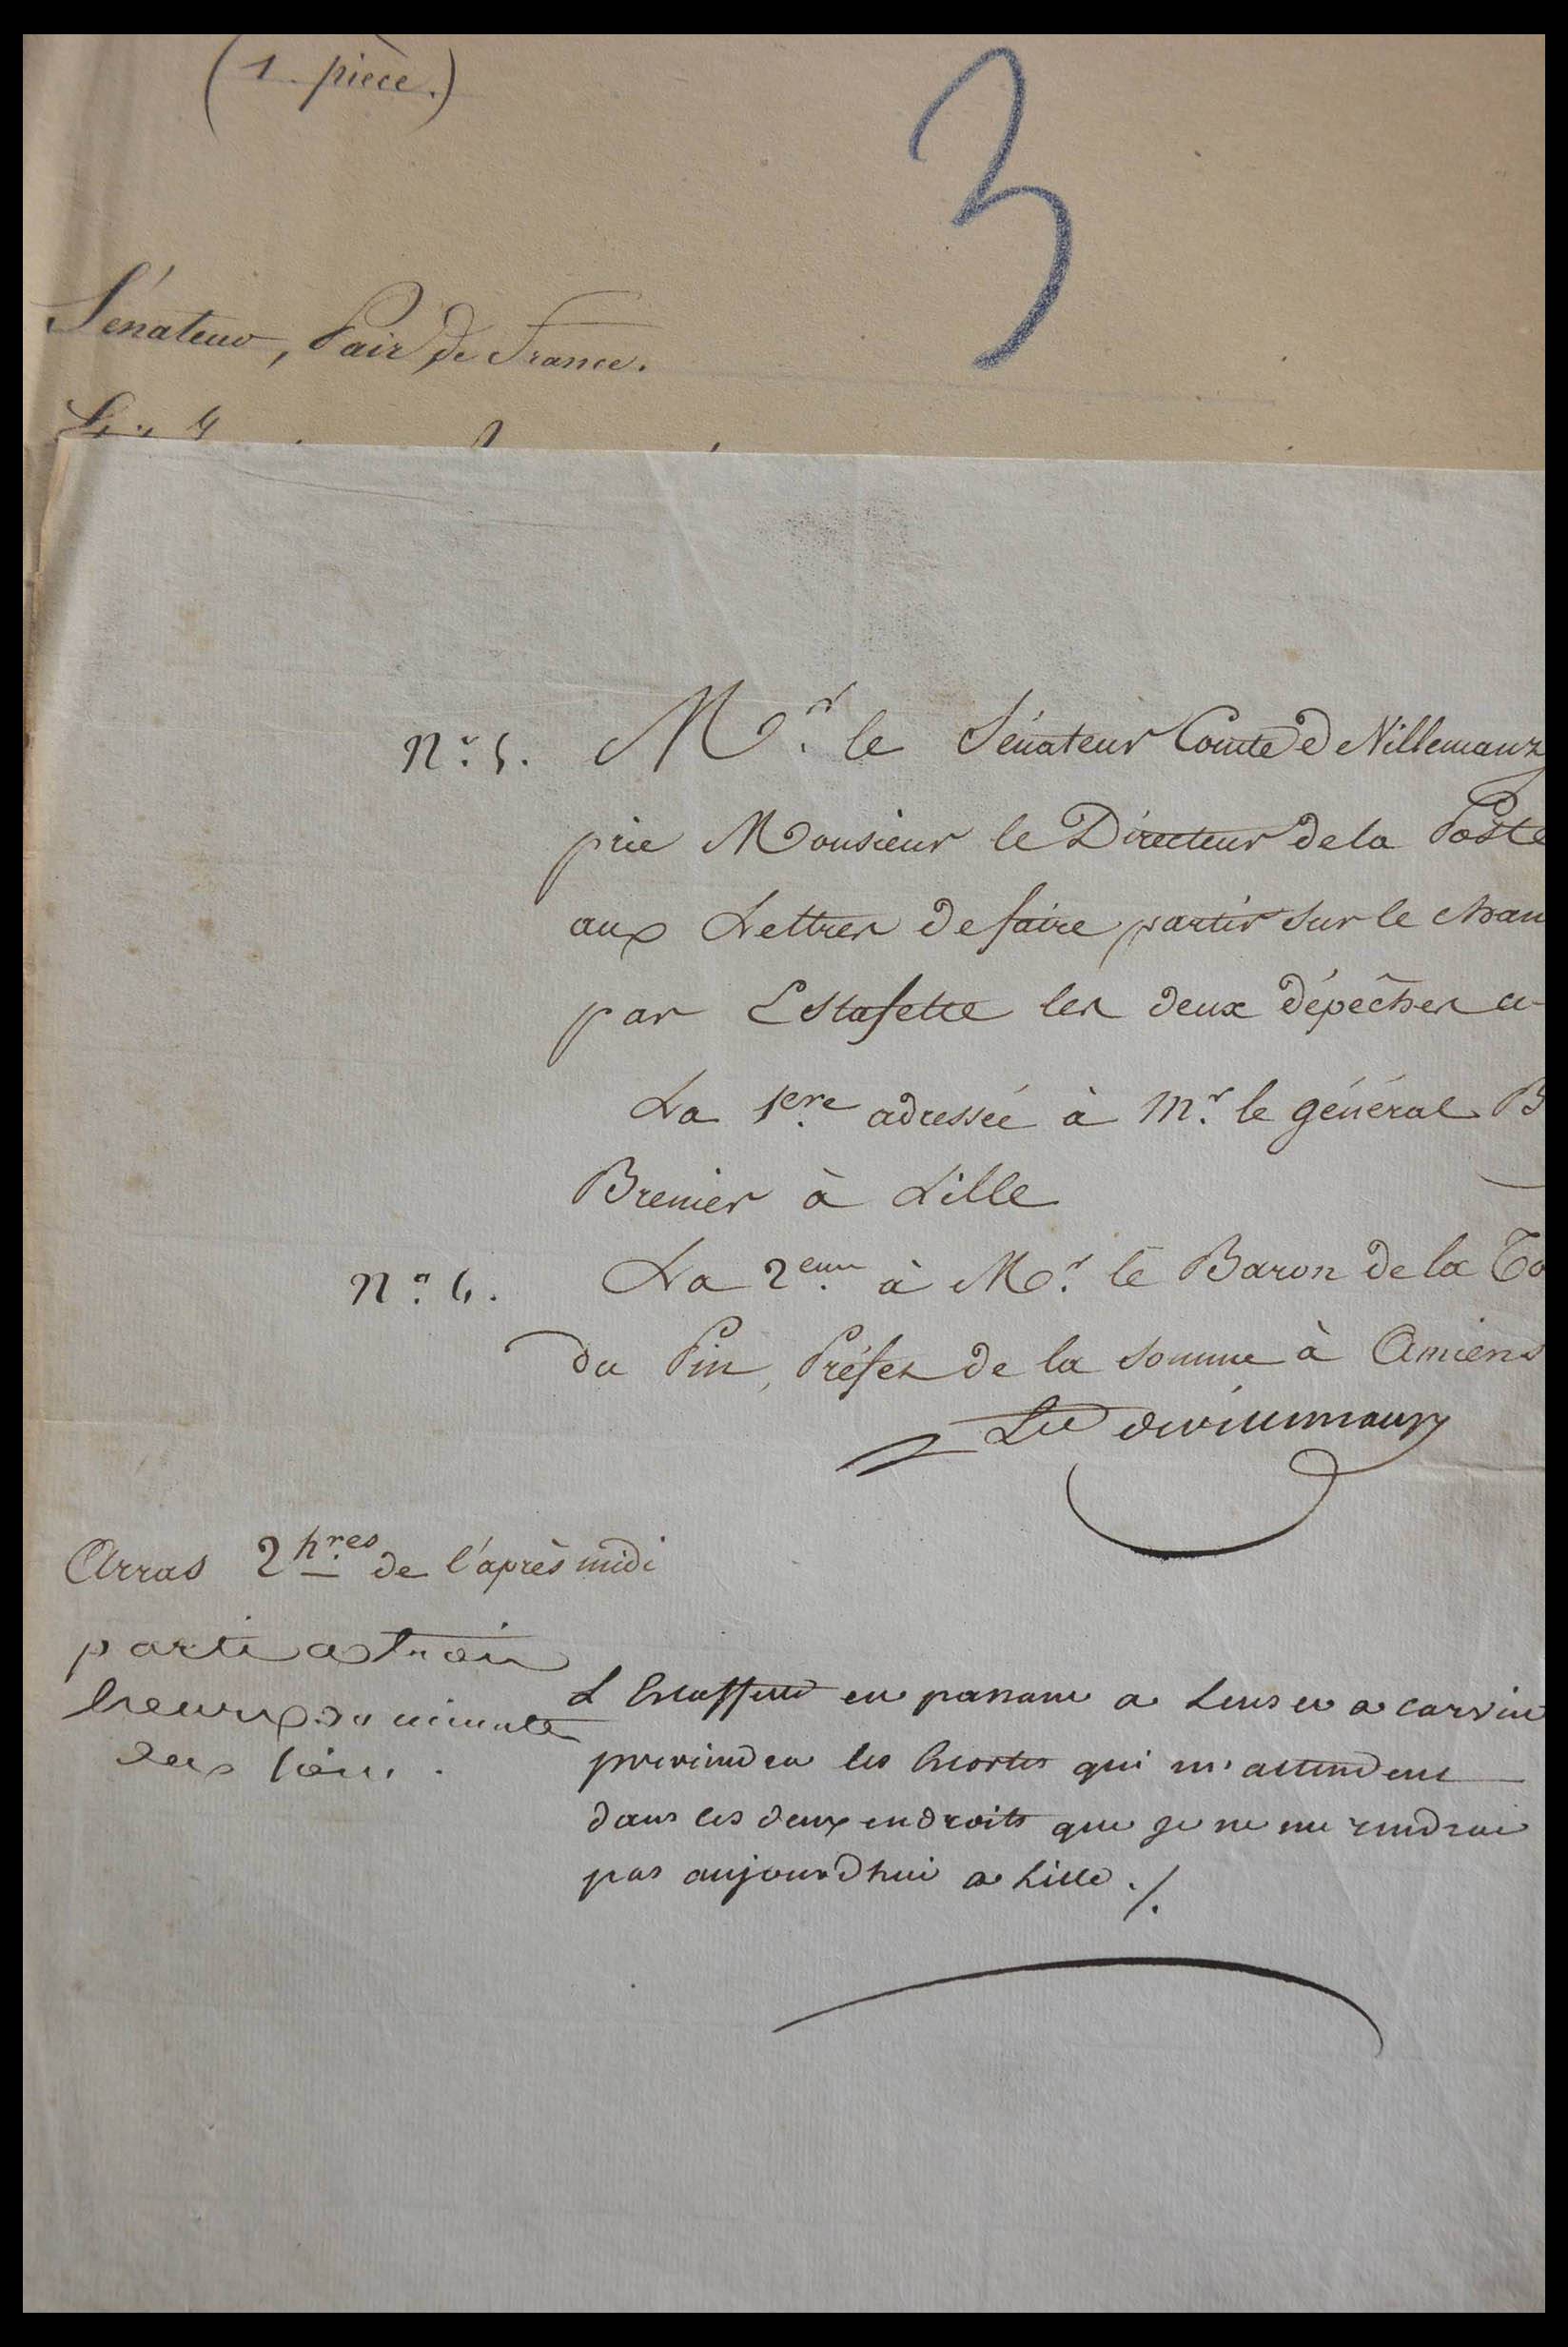 (1. pièce.)
3
Sénateur, Pair de France.
N.o 5. M.r le Sénateur Comte de Villemanzy
prie Monsieur le Directeur de la Poste
aux Lettres de faire partir sur le chan
par Estafette les deux dépêches ci-
La 1ere adressée à M.r le général B
Brenier à Lille
N.o 6. La 2eme à M.r le Baron de la To
du Pin, Préfet de la Somme à Amiens
de villemanzy
Arras 2 hres de l'après midi
parti a trois
heures minute
L'Estaffette en passant a Lens et a carvin
previendra les Escortes qui m'attendent
dans ces deux endroits que je ne me rendrai
pas aujourd'hui a Lille ./.